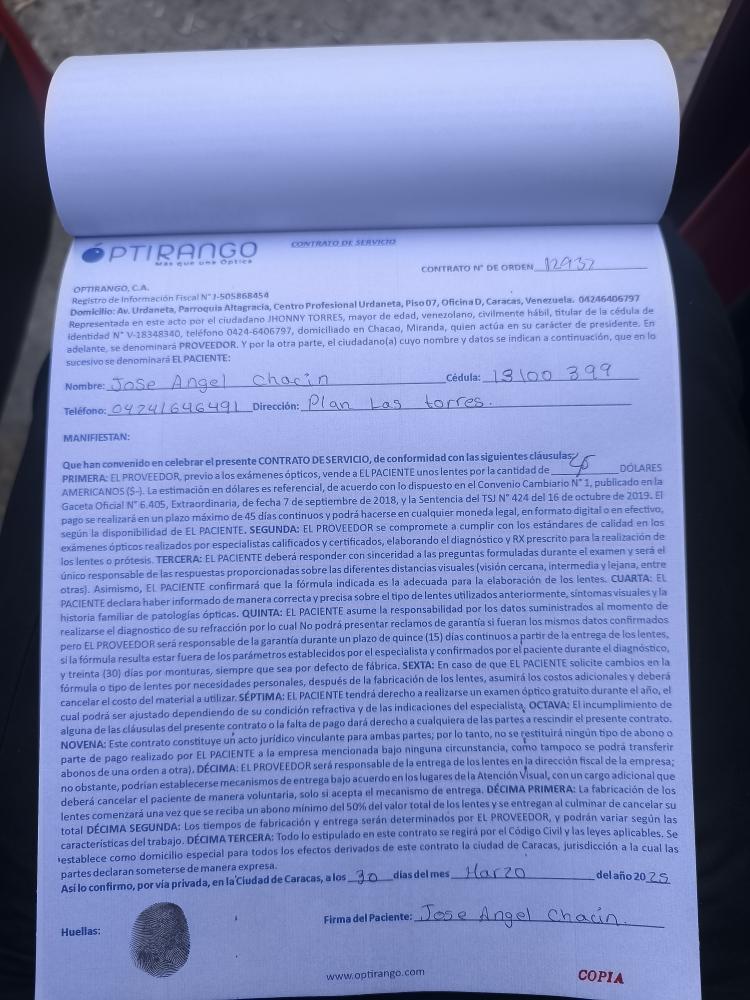 OPTIRANGO
Más que una Óptica
CONTRATO DE SERVICIO
CONTRATO N° DE ORDEN 12937
OPTIRANGO, C.A.
Registro de Información Fiscal N° J-505868454
Domicilio: Av. Urdaneta, Parroquia Altagracia, Centro Profesional Urdaneta, Piso 07, Oficina D, Caracas, Venezuela. 04246406797
Representada en este acto por el ciudadano JHONNY TORRES, mayor de edad, venezolano, civilmente hábil, titular de la cédula de
identidad N° V-18348340, teléfono 0424-6406797, domiciliado en Chacao, Miranda, quien actúa en su carácter de presidente. En
adelante, se denominará PROVEEDOR. Y por la otra parte, el ciudadano(a) cuyo nombre y datos se indican a continuación, que en lo
sucesivo se denominará EL PACIENTE:
Nombre: Jose Angel Chacin Cédula: 13100 399
Teléfono: 04241646491 Dirección: Plan Las torres.
MANIFIESTAN:
Que han convenido en celebrar el presente CONTRATO DE SERVICIO, de conformidad con las siguientes cláusulas:
PRIMERA: EL PROVEEDOR, previo a los exámenes ópticos, vende a EL PACIENTE unos lentes por la cantidad de 45 DÓLARES
AMERICANOS (S-). La estimación en dólares es referencial, de acuerdo con lo dispuesto en el Convenio Cambiario N° 1, publicado en la
Gaceta Oficial N° 6.405, Extraordinaria, de fecha 7 de septiembre de 2018, y la Sentencia del TSJ N° 424 del 16 de octubre de 2019. El
pago se realizará en un plazo máximo de 45 días continuos y podrá hacerse en cualquier moneda legal, en formato digital o en efectivo,
según la disponibilidad de EL PACIENTE. SEGUNDA: EL PROVEEDOR se compromete a cumplir con los estándares de calidad en los
exámenes ópticos realizados por especialistas calificados y certificados, elaborando el diagnóstico y RX prescrito para la realización de
los lentes o prótesis. TERCERA: EL PACIENTE deberá responder con sinceridad a las preguntas formuladas durante el examen y será el
único responsable de las respuestas proporcionadas sobre las diferentes distancias visuales (visión cercana, intermedia y lejana, entre
otras). Asimismo, EL PACIENTE confirmará que la fórmula indicada es la adecuada para la elaboración de los lentes. CUARTA: EL
PACIENTE declara haber informado de manera correcta y precisa sobre el tipo de lentes utilizados anteriormente, síntomas visuales y la
historia familiar de patologías ópticas. QUINTA: EL PACIENTE asume la responsabilidad por los datos suministrados al momento de
realizarse el diagnostico de su refracción por lo cual No podrá presentar reclamos de garantía si fueran los mismos datos confirmados
pero EL PROVEEDOR será responsable de la garantía durante un plazo de quince (15) días continuos a partir de la entrega de los lentes,
si la fórmula resulta estar fuera de los parámetros establecidos por el especialista y confirmados por el paciente durante el diagnóstico,
y treinta (30) días por monturas, siempre que sea por defecto de fábrica. SEXTA: En caso de que EL PACIENTE solicite cambios en la
fórmula o tipo de lentes por necesidades personales, después de la fabricación de los lentes, asumirá los costos adicionales y deberá
cancelar el costo del material a utilizar. SÉPTIMA: EL PACIENTE tendrá derecho a realizarse un examen óptico gratuito durante el año, el
cual podrá ser ajustado dependiendo de su condición refractiva y de las indicaciones del especialista. OCTAVA: El incumplimiento de
alguna de las cláusulas del presente contrato o la falta de pago dará derecho a cualquiera de las partes a rescindir el presente contrato.
NOVENA: Este contrato constituye un acto jurídico vinculante para ambas partes; por lo tanto, no se restituirá ningún tipo de abono o
parte de pago realizado por EL PACIENTE a la empresa mencionada bajo ninguna circunstancia, como tampoco se podrá transferir
abonos de una orden a otra). DÉCIMA: EL PROVEEDOR será responsable de la entrega de los lentes en la dirección fiscal de la empresa;
no obstante, podrían establecerse mecanismos de entrega bajo acuerdo en los lugares de la Atención Visual, con un cargo adicional que
deberá cancelar el paciente de manera voluntaria, solo si acepta el mecanismo de entrega. DÉCIMA PRIMERA: La fabricación de los
lentes comenzará una vez que se reciba un abono mínimo del 50% del valor total de los lentes y se entregan al culminar de cancelar su
total DÉCIMA SEGUNDA: Los tiempos de fabricación y entrega serán determinados por EL PROVEEDOR, y podrán variar según las
características del trabajo. DÉCIMA TERCERA: Todo lo estipulado en este contrato se regirá por el Código Civil y las leyes aplicables. Se
establece como domicilio especial para todos los efectos derivados de este contrato la ciudad de Caracas, jurisdicción a la cual las
partes declaran someterse de manera expresa.
Así lo confirmo, por vía privada, en la Ciudad de Caracas, a los 30 días del mes Marzo del año 2025
Huellas:
Firma del Paciente: Jose Angel Chacin.
www.optirango.com
COPIA